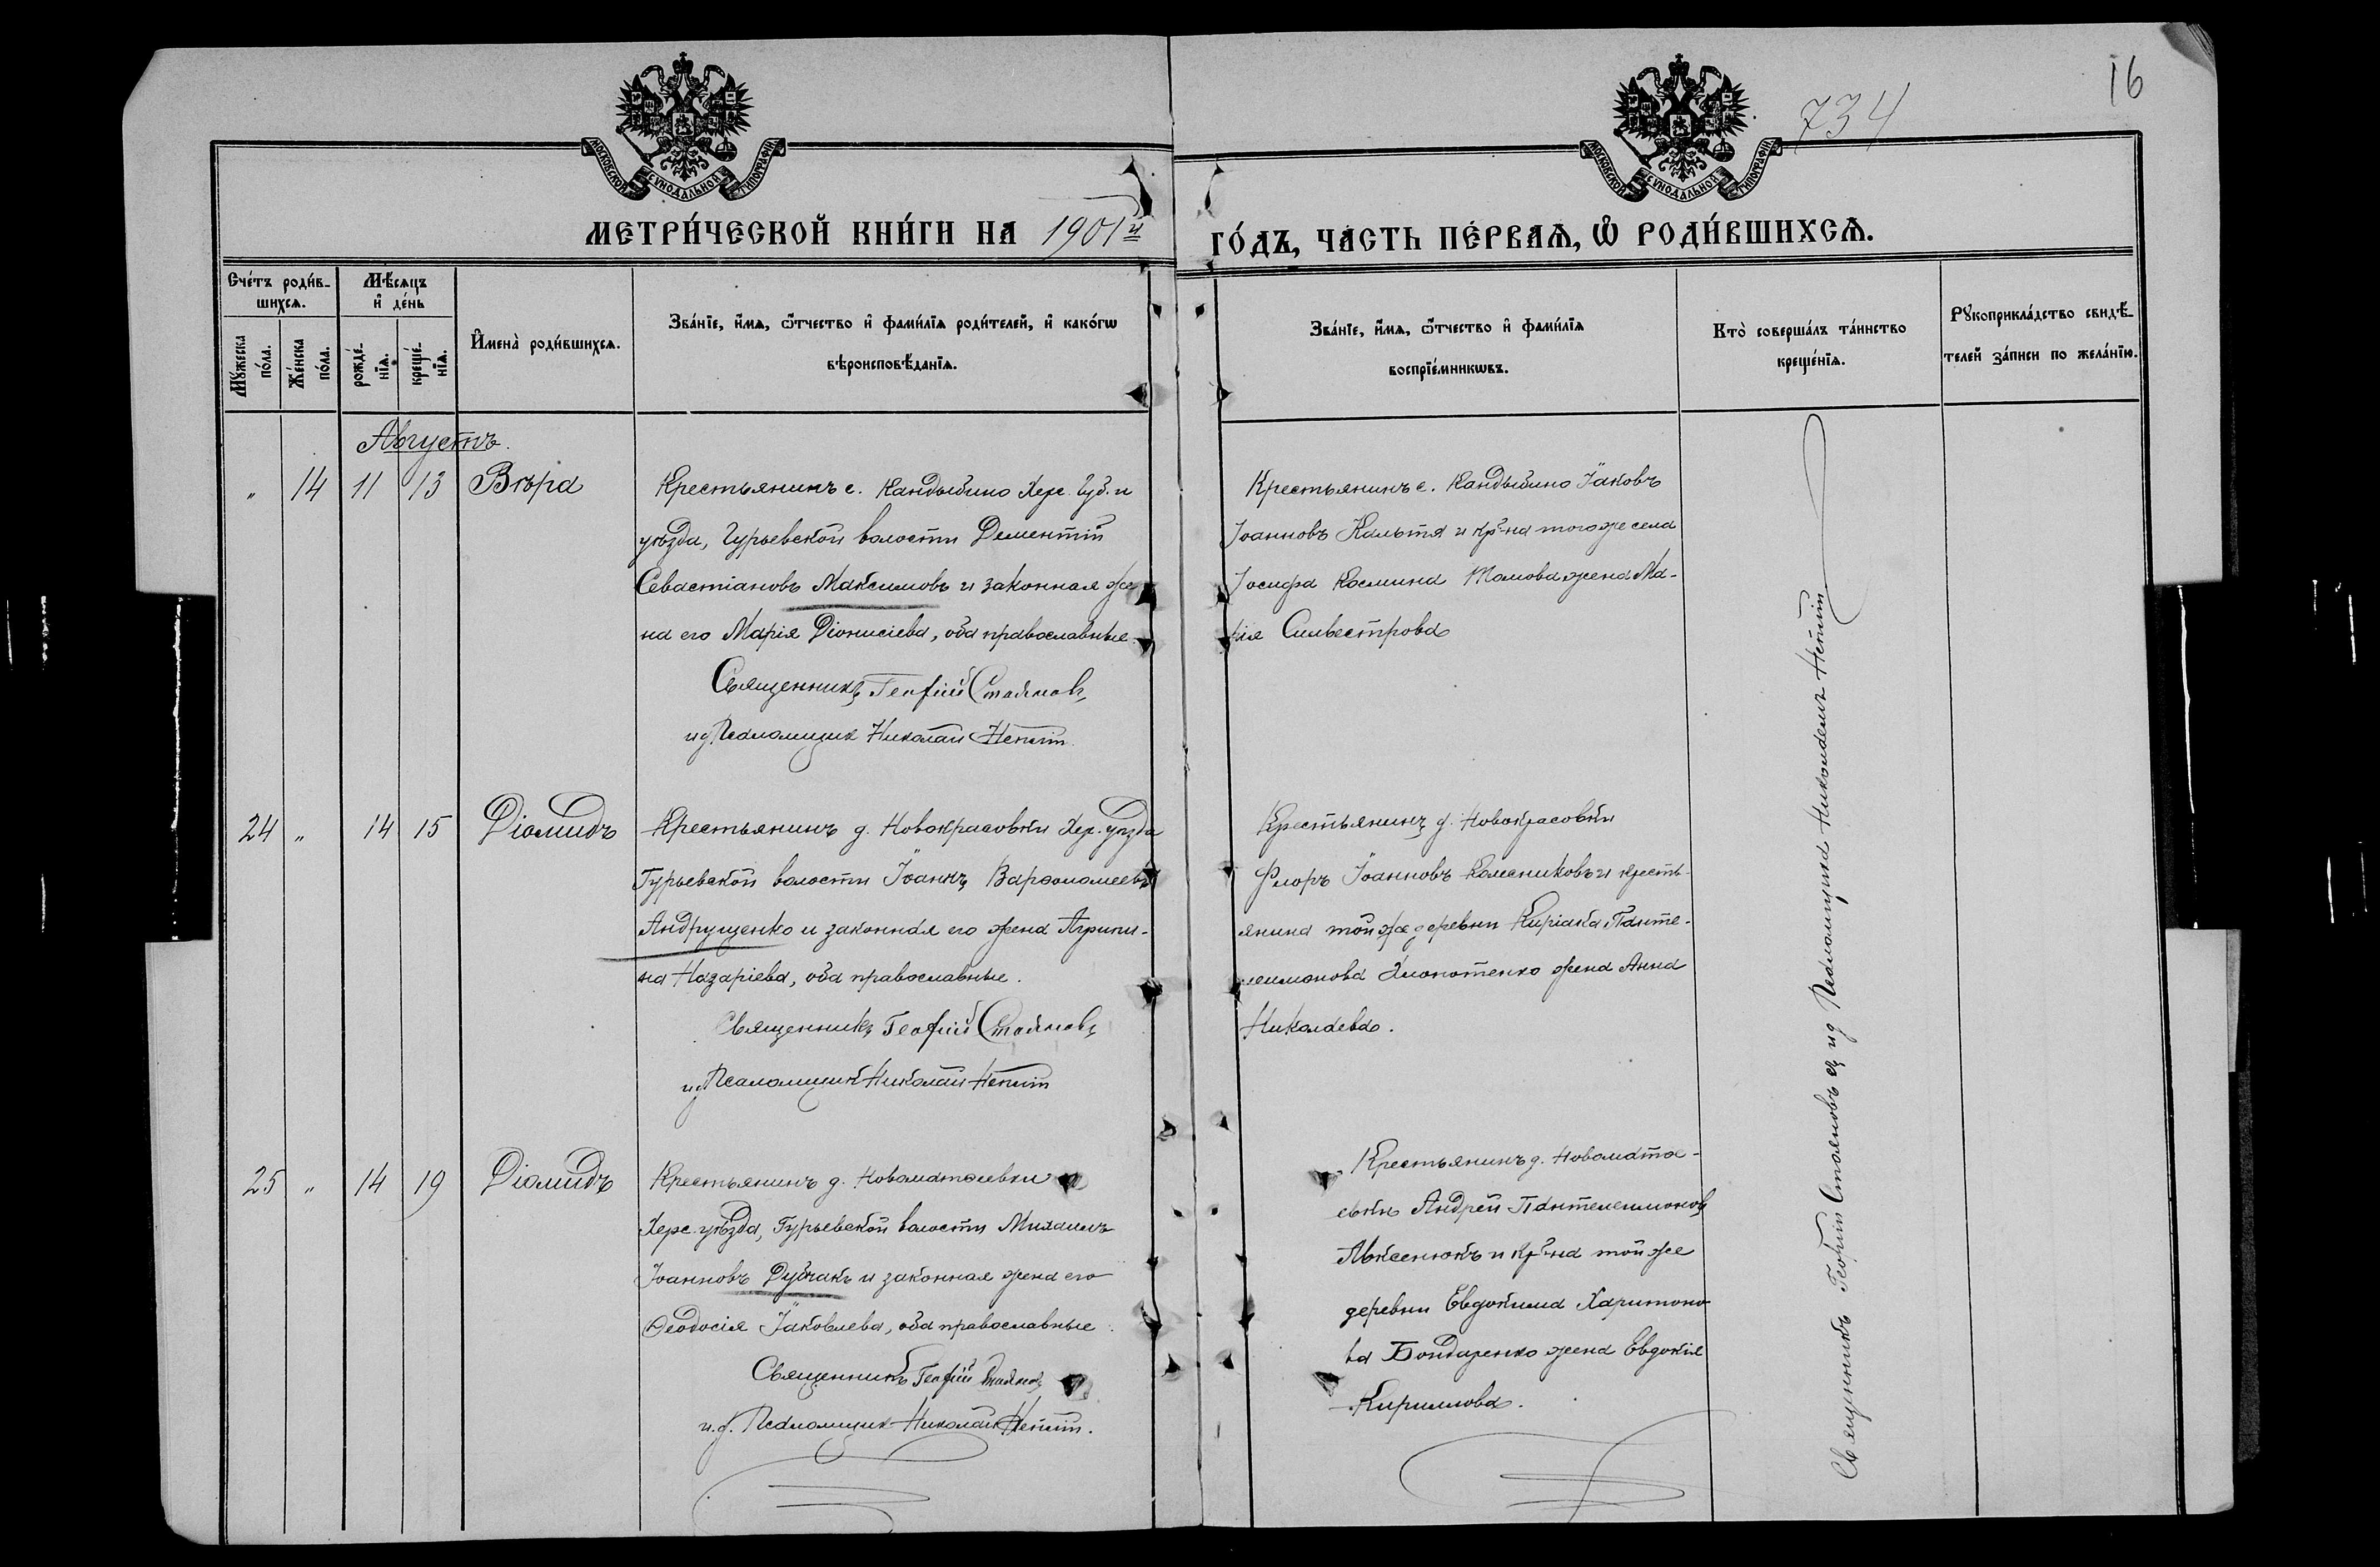 16
734
МОСКОВСКОЙ СѴНОДАЛЬНОЙ ТИПОГРАФІИ
МОСКОВСКОЙ СѴНОДАЛЬНОЙ ТИПОГРАФІИ
МЕТРИ́ЧЕСКОЙ КНИ́ГИ НА 1901й
ГО́ДЪ, ЧА́СТЬ ПЕ́РВАѦ, Ѡ҆ РОДИ́ВШИХСѦ.
Сче́тъ роди́в-
шихсѧ.
Мꙋ́жеска по́ла.
Же́нска по́ла.
Мѣ́сѧцъ
и҆ де́нь
рожде́-
нїѧ.
креще́-
нїѧ.
И҆мена̀ роди́вшихсѧ.
Зва́нїе, и҆́мѧ, ѻ҆́тчество и҆ фами́лїѧ роди́телей, и҆ како́гѡ
вѣроисповѣ́данїѧ.
Зва́нїе, и҆́мѧ, ѻ҆́тчество и҆ фами́лїѧ
воспрїе́мникѡвъ.
Кто̀ соверша́лъ та́инство
креще́нїѧ.
Рꙋкоприкла́дство свидѣ́-
телей за́писи по жела́нїю.
Августъ.
" 14 11 13 Вѣра
Крестьянинъ с. Кандыбино Херс. губ. и
уѣзда, Гурьевской волости Дементій
Севастіановъ Максимовъ и законная же
на его Марія Діонисіева, оба православные.
Священникъ Георгій Стояновъ
и д. Псаломщик Николай Непит
Крестьянинъ с. Кандыбино Іаковъ
Іоанновъ Кальтя и кр-на того же села
Іосифа Космина Томова жена Ма-
рія Сильвестрова
24 " 14 15 Діомидъ
Крестьянинъ д. Новокрасовки Хер. уѣзда
Гурьевской волости Іоаннъ Варѳоломеевъ
Андрущенко и законная его жена Агрипи-
на Назаріева, оба православные.
Священникъ Георгій Стояновъ
и д. Псаломщик Николай Непит
Крестьянинъ д. Новокрасовки
Флоръ Іоанновъ Колесниковъ и кресть-
янина той же деревни Киріака Панте-
леимонова Хлопотенко жена Анна
Николаева.
25 " 14 19 Діомидъ
Крестьянинъ д. Новоматвеевки
Херс. уѣзда, Гурьевской волости Михаилъ
Іоанновъ Дубчакъ и законная жена его
Ѳеодосія Іаковлева, оба православные.
Священникъ Георгій Стояновъ
и. д. Псаломщик Николай Непит.
Крестьянинъ д. Новоматве-
евки Андрей Пантелеимоновъ
Авксенюкъ и кр-на той же
деревни Евдокима Харитоно-
ва Бондаренко жена Евдокія
Кириллова.
Священникъ Георгій Стояновъ съ и д Псаломщика Николаемъ Непит